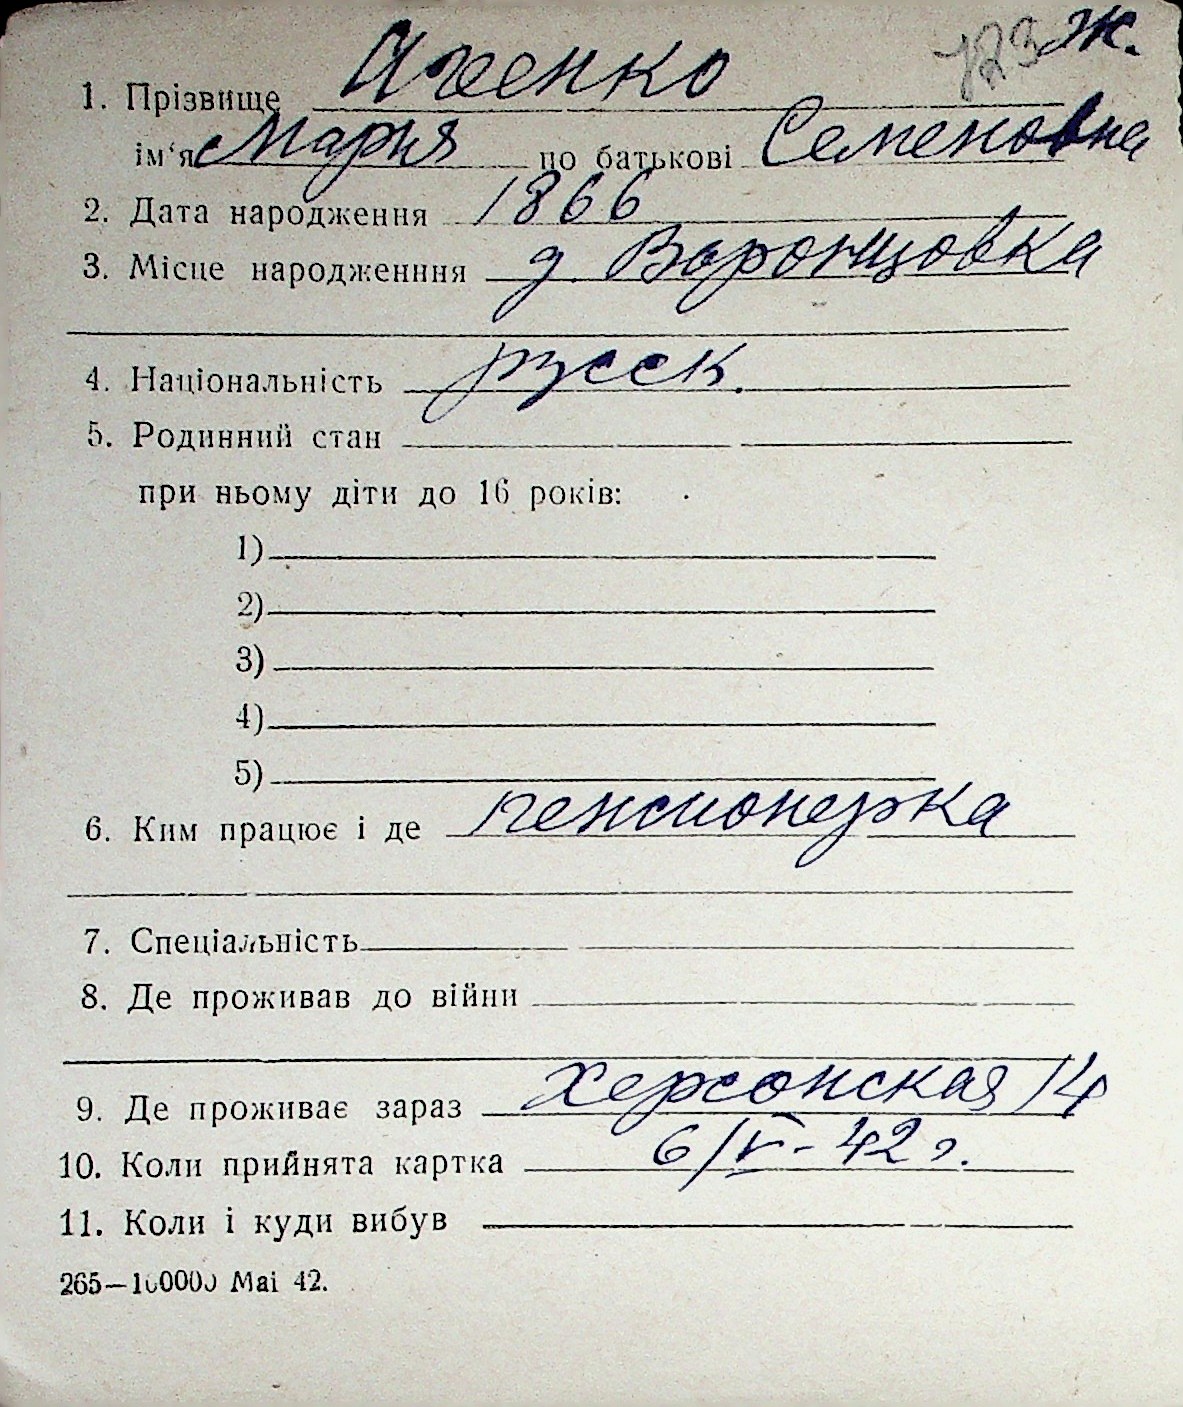 723 ж.
1. Прізвище Яхенко
ім'я Мария по батькові Семеновна
2. Дата народження 1866
3. Місце народженння д. Воронцовка
4. Національність русск.
5. Родинний стан
при ньому діти до 16 років:
1)
2)
3)
4)
5)
6. Ким працює і де пенсионерка
7. Спеціальність
8. Де проживав до війни
9. Де проживає зараз Херсонская 14
10. Коли прийнята картка 6/V - 42 г.
11. Коли і куди вибув
265—100000 Mai 42.